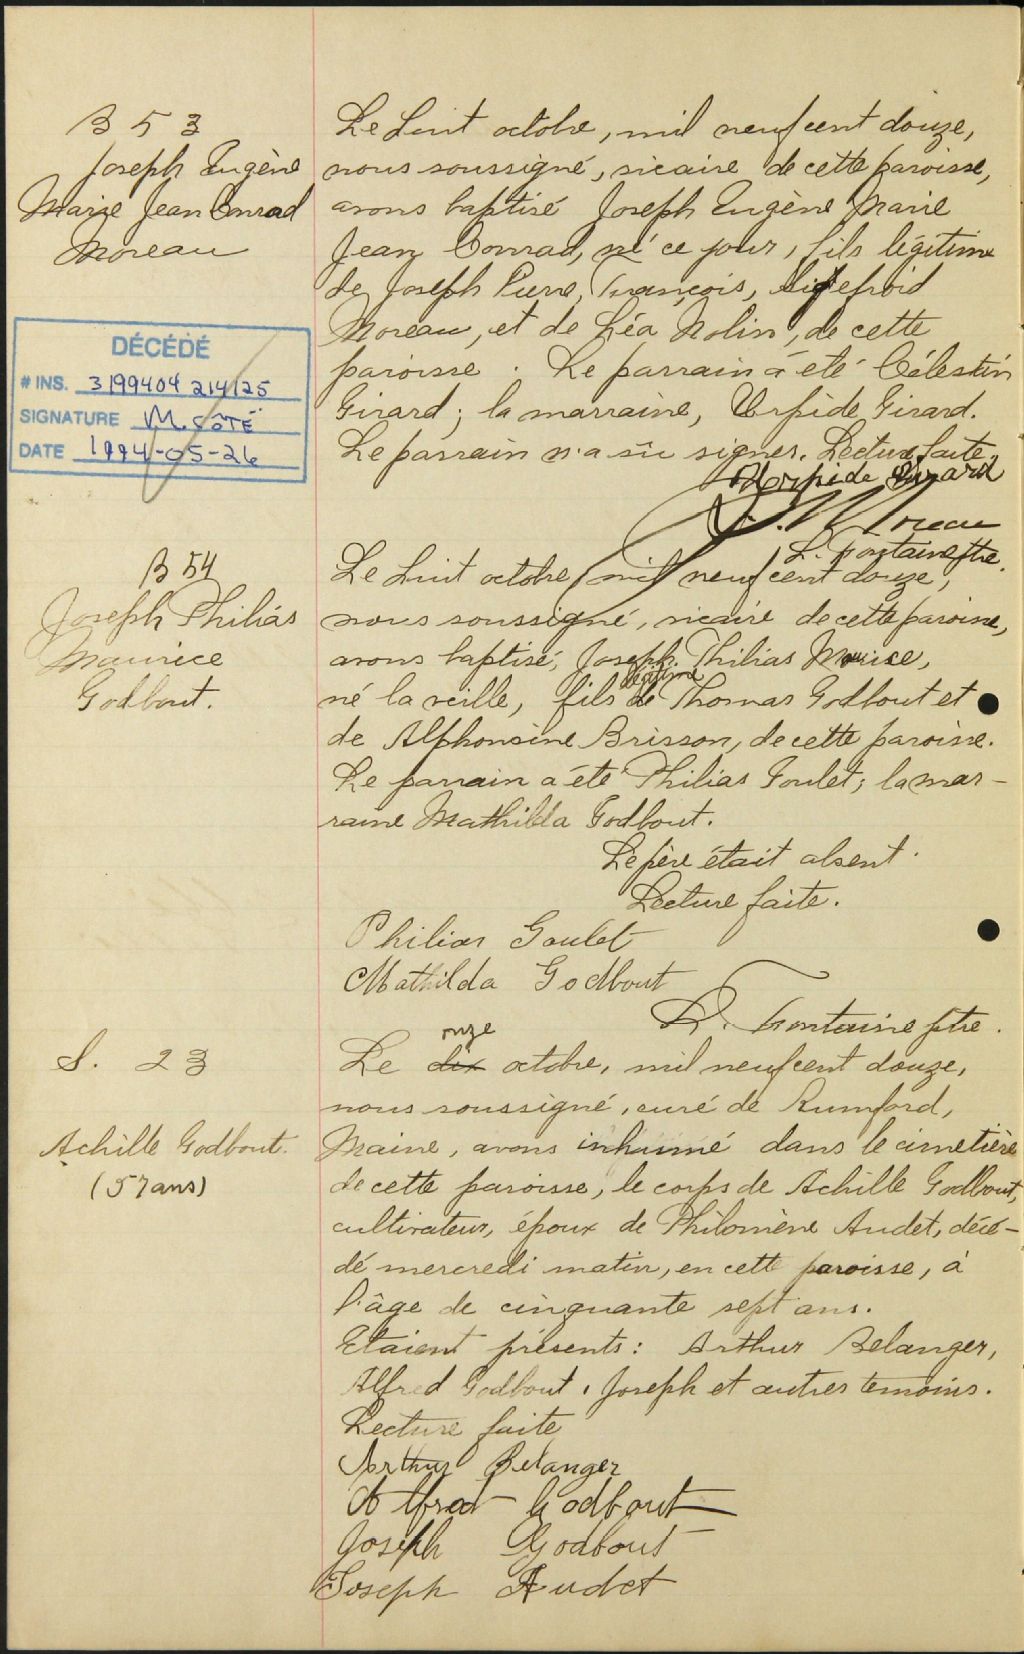 B 53
Joseph Eugène
Marie Jean Conrad
Moreau
Le huit octobre, mil neuf cent douze,
nous soussigné, vicaire de cette paroisse,
avons baptisé Joseph Eugène Marie
Jean Conrad, né ce jour, fils légitime
de Joseph Pierre, François, Sigefroid
Moreau, et de Léa Nolin, de cette
paroisse. Le parrain a été Célestin
Girard; la marraine, Girard.
Le parrain n'a su signer. Lecture faite.
Girard
Moreau
L. Fontaine ptre.
DÉCÉDÉ
# INS. 3199404 214125
SIGNATURE M. CÔTÉ
DATE 1994-05-26
B 54
Joseph Philias
Maurice
Godbout.
Le huit octobre, mil neuf cent douze,
nous soussigné, vicaire de cette paroisse,
avons baptisé, Joseph Philias Maurice,
né la veille, fils légitime de Thomas Godbout et
de Alphonsine Brisson, de cette paroisse.
Le parrain a été Philias Goulet; la mar-
raine Mathilda Godbout.
Le père était absent.
Lecture faite.
Philias Goulet
Mathilda Godbout
L. Fontaine ptre.
S. 23
Achille Godbout.
(57 ans)
Le dix onze octobre, mil neuf cent douze,
nous soussigné, curé de Rumford,
Maine, avons inhumé dans le cimetière
de cette paroisse, le corps de Achille Godbout,
cultivateur, époux de Philomène Audet, décé-
dé mercredi matin, en cette paroisse, à
l'âge de cinquante sept ans.
Etaient présents: Arthur Belanger,
Alfred Godbout, Joseph et autres temoins.
Lecture faite
Arthur Belanger
Alfred Godbout
Joseph Godbout
Joseph Audet